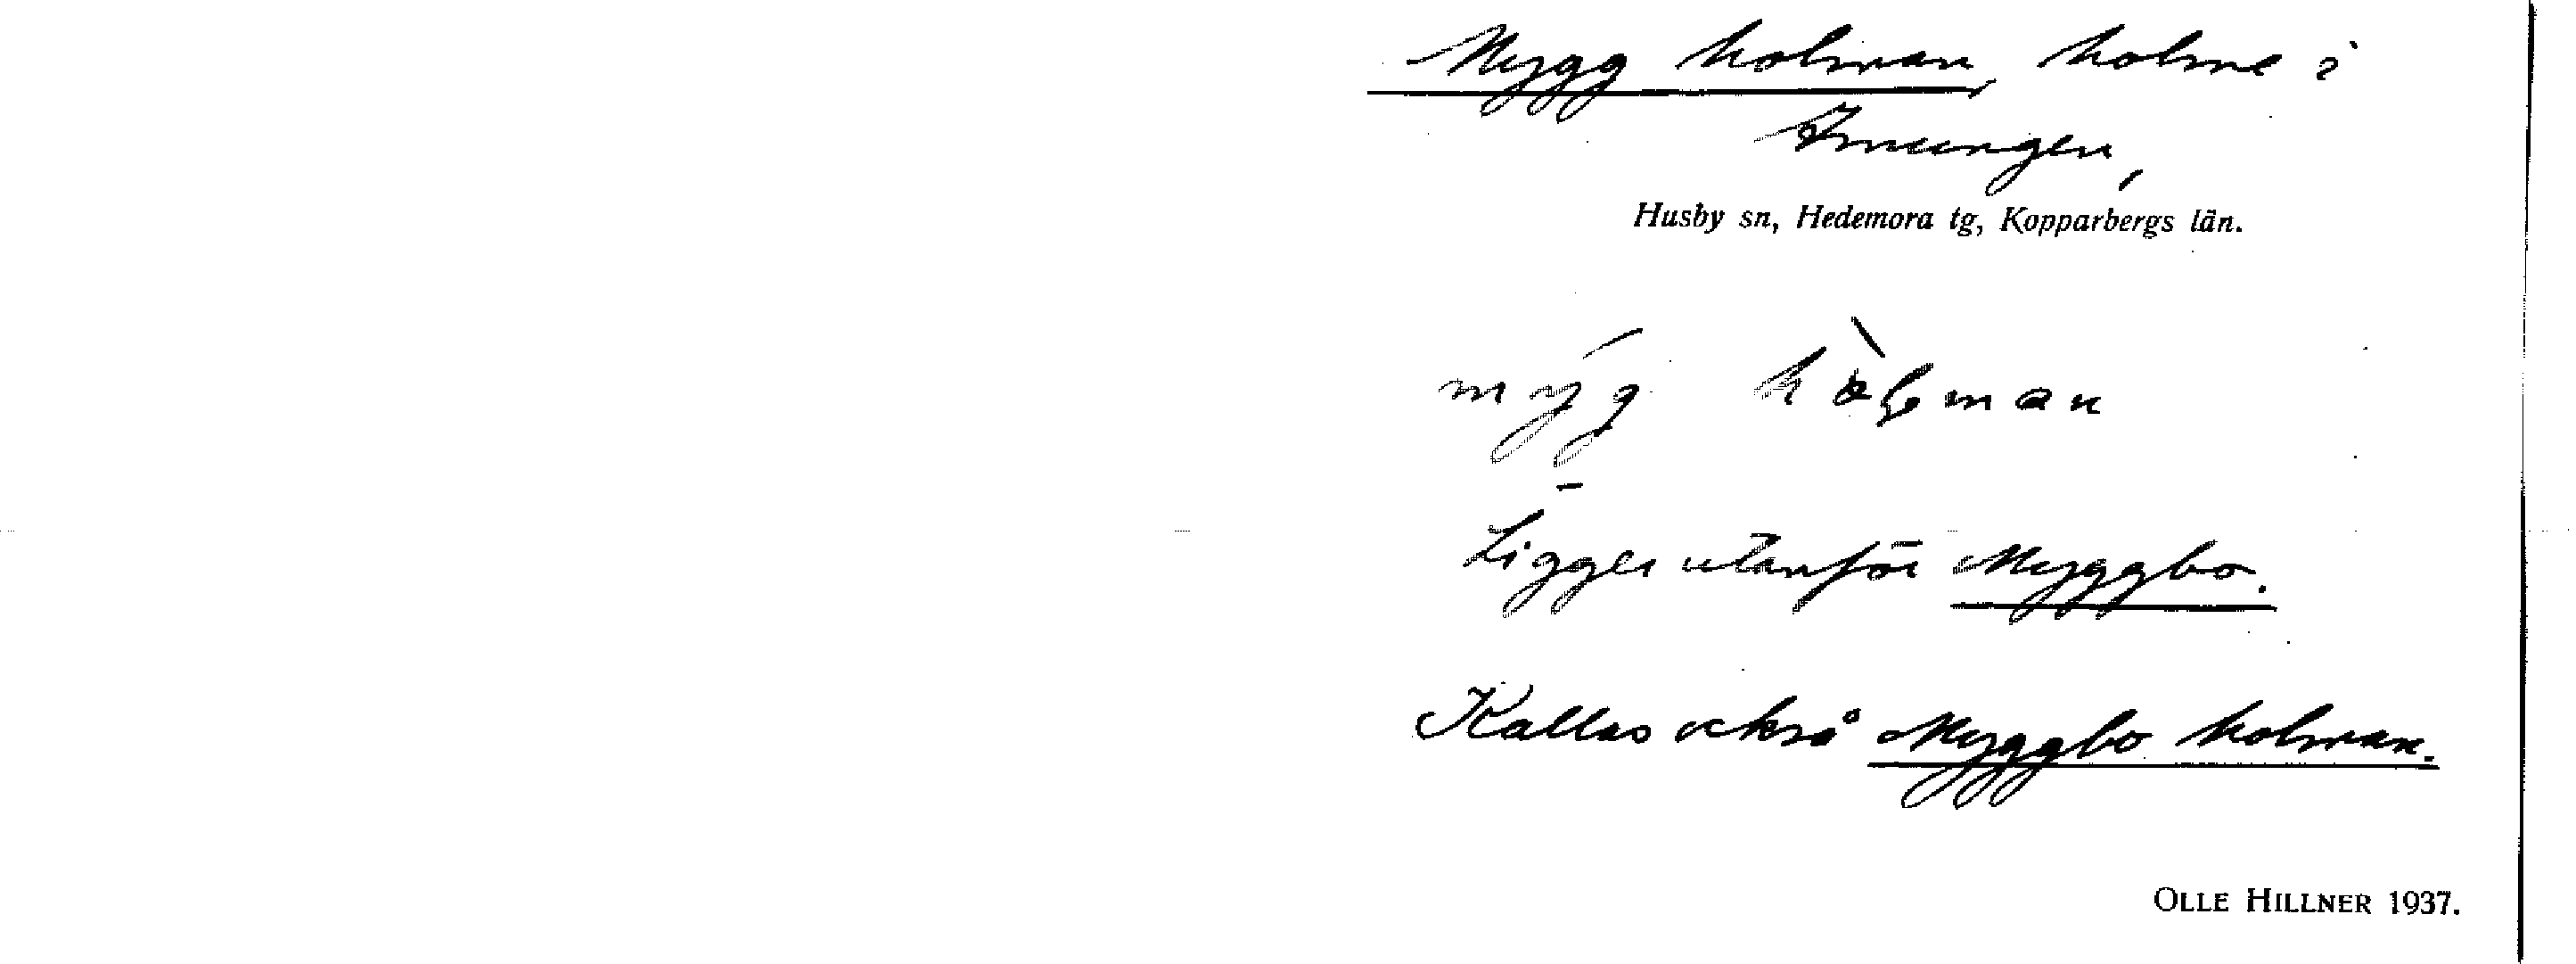 Mygg holman, holme i
Amungen,
Husby sn, Hedemora tg, Kopparbergs län.
Ligger utanför Myggbo.
Kallas också Myggbo holman.
OLLE HILLNER 1937.